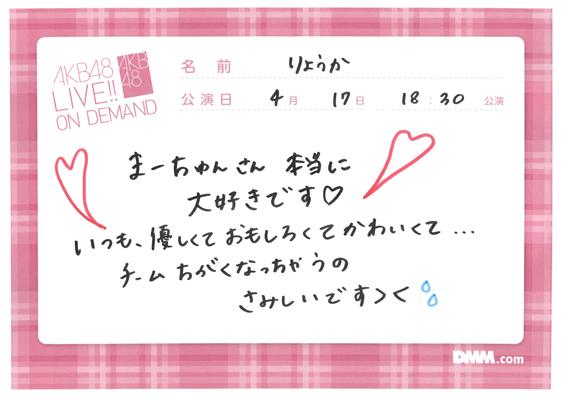 AKB48
LIVE!!
ON DEMAND
AKB
48
名前 りょうか
公演日 4月 17日 18:30 公演
まーちゅんさん 本当に
大好きです♡
いつも、優しくて おもしろくて かわいくて...
チーム ちがくなっちゃうの
さみしいです><
DMM.com